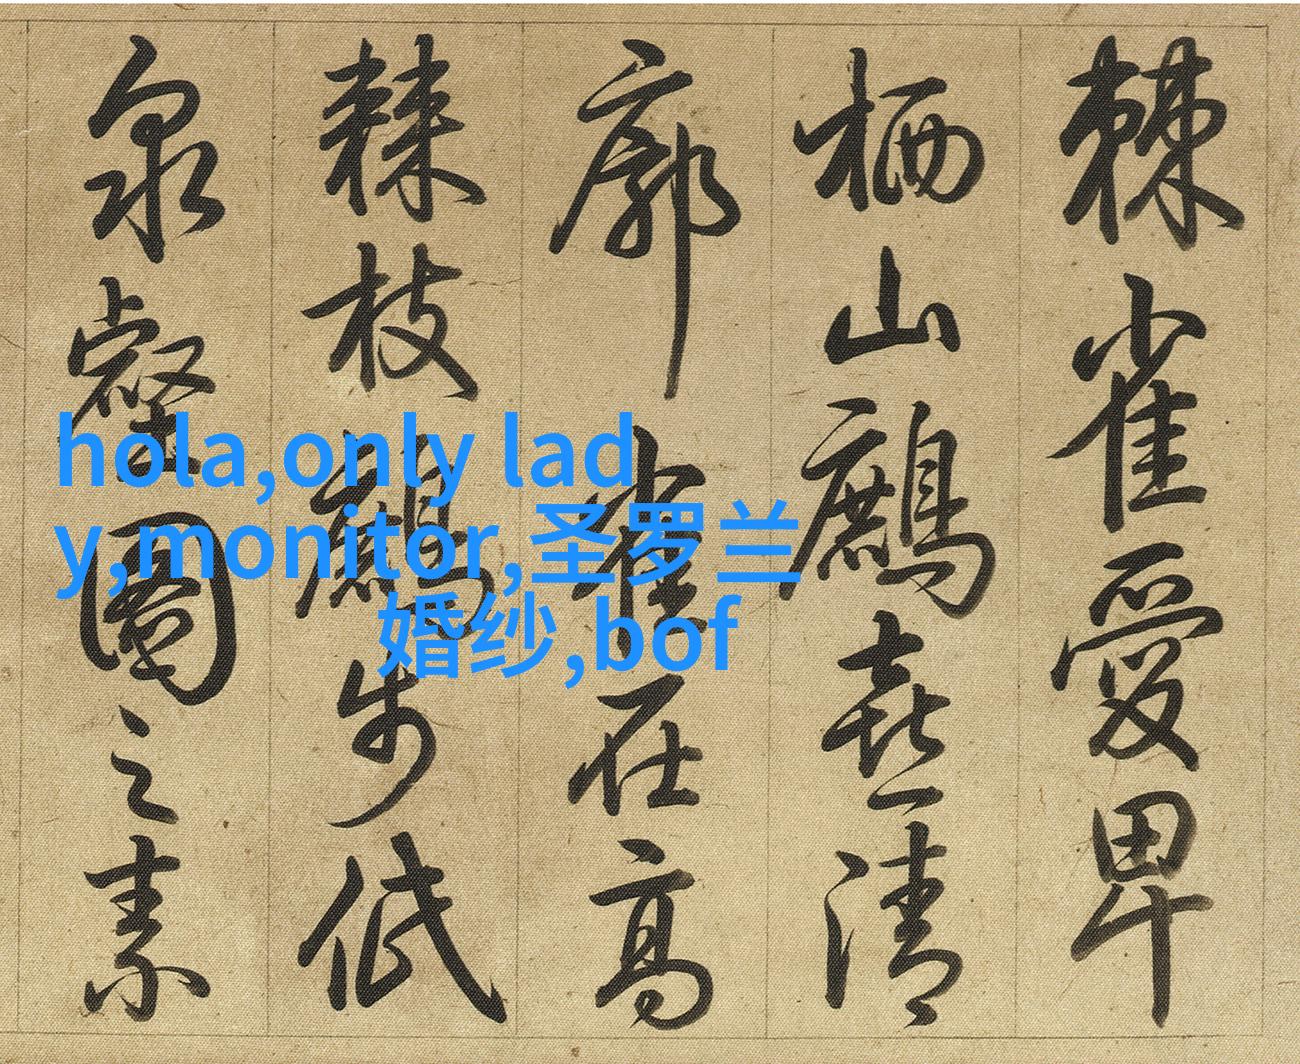 棘雀愛卑
栖山鷓喜清
廓雀在高
棘枝鷓步低
泉壑圖之素
hola,only lad
y,monitor,圣罗兰
婚纱,bof